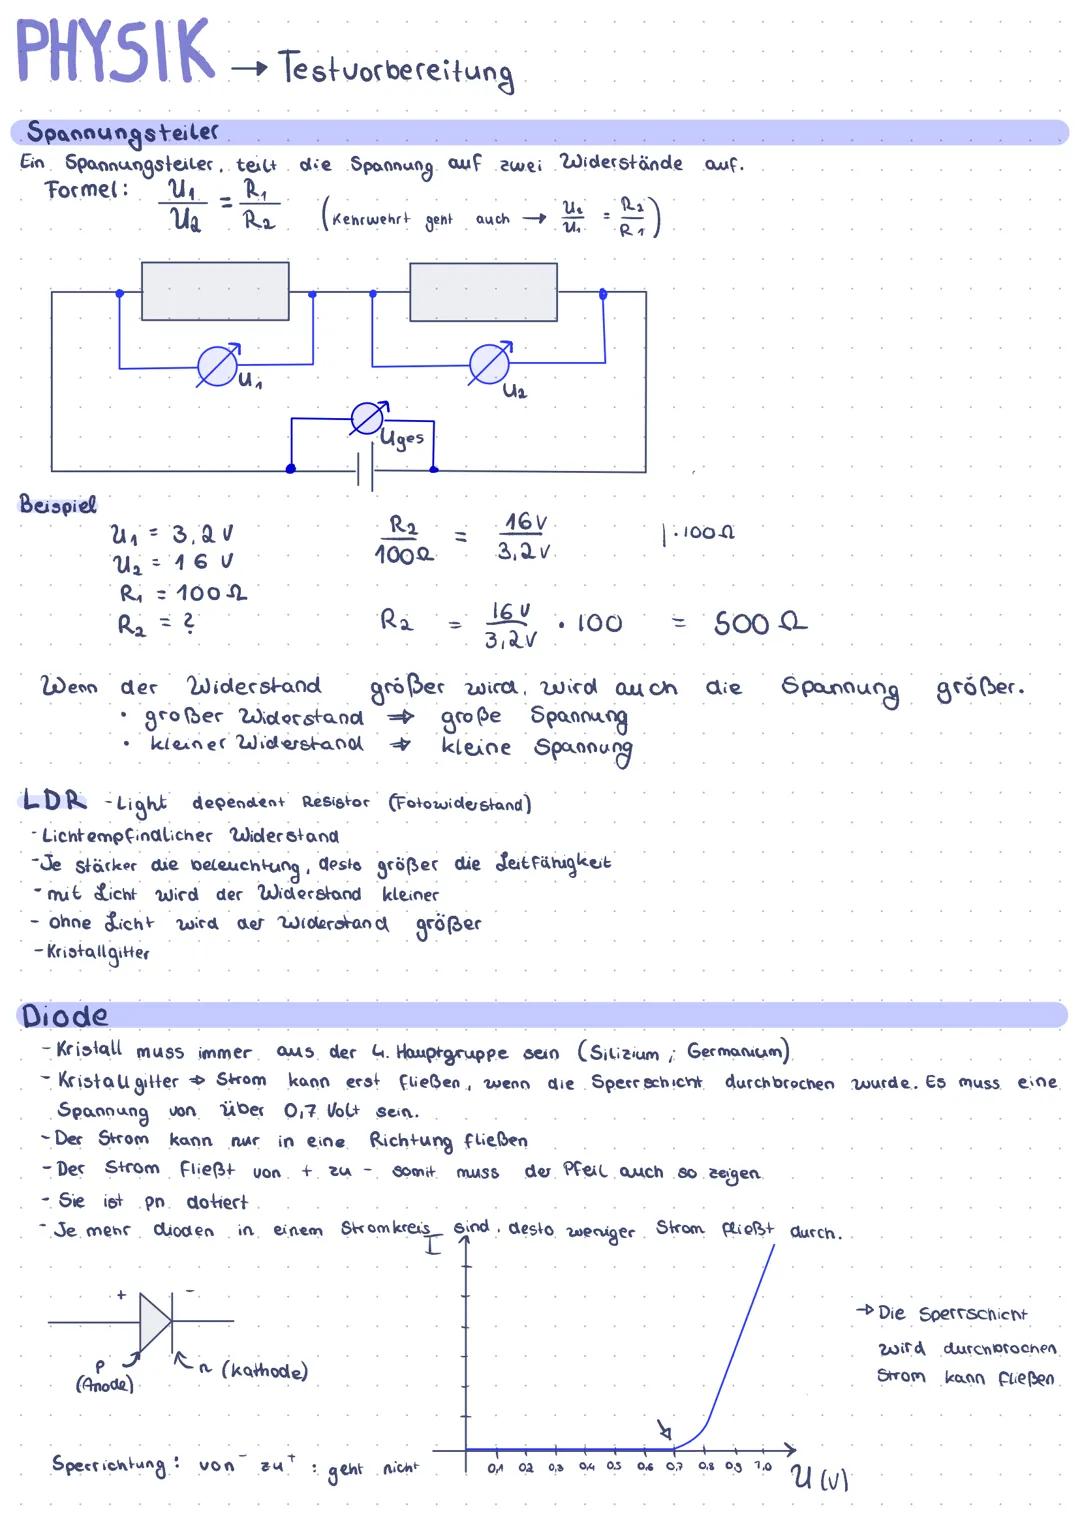 PHYSIK → Testvorbereitung
Spannungsteiler
Ein Spannungsteiler, teilt die Spannung auf zwei Widerstände auf.
Formel: U₁/U₂ = R₁/R₂ (Kehrwehrt geht auch → U₂/U₁ = R₂/R₁)
U₁
U₂
Uges
Beispiel
U₁ = 3,2 V
U₂ = 16 V
R₁ = 100 Ω
R₂ = ?
R₂/100Ω = 16V/3,2V |·100Ω
R₂ = 16V/3,2V · 100 = 500 Ω
Wenn der Widerstand größer wird, wird auch die Spannung größer.
• großer Widerstand ⇒ große Spannung
• kleiner Widerstand ⇒ kleine Spannung
LDR - Light dependent Resistor (Fotowiderstand)
- Lichtempfindlicher Widerstand
- Je stärker die beleuchtung, desto größer die Leitfähigkeit
- mit Licht wird der Widerstand kleiner
- ohne Licht wird der Widerstand größer
- Kristallgitter
Diode
- Kristall muss immer aus der 4. Hauptgruppe sein (Silizium ; Germanium)
- Kristallgitter ⇒ Strom kann erst fließen, wenn die Sperrschicht durchbrochen wurde. Es muss eine
Spannung von über 0,7 Volt sein.
- Der Strom kann nur in eine Richtung fließen
- Der Strom fließt von + zu - somit muss der Pfeil auch so zeigen
- Sie ist pn dotiert
- Je mehr dioden in einem Stromkreis sind, desto weniger Strom fließt durch.
I
+ -
p
(Anode)
n (Kathode)
→ Die Sperrschicht
wird durchbrochen
Strom kann fließen
Sperrichtung: von - zu + : geht nicht
0,1 0,2 0,3 0,4 0,5 0,6 0,7 0,8 0,9 1,0
U (V)